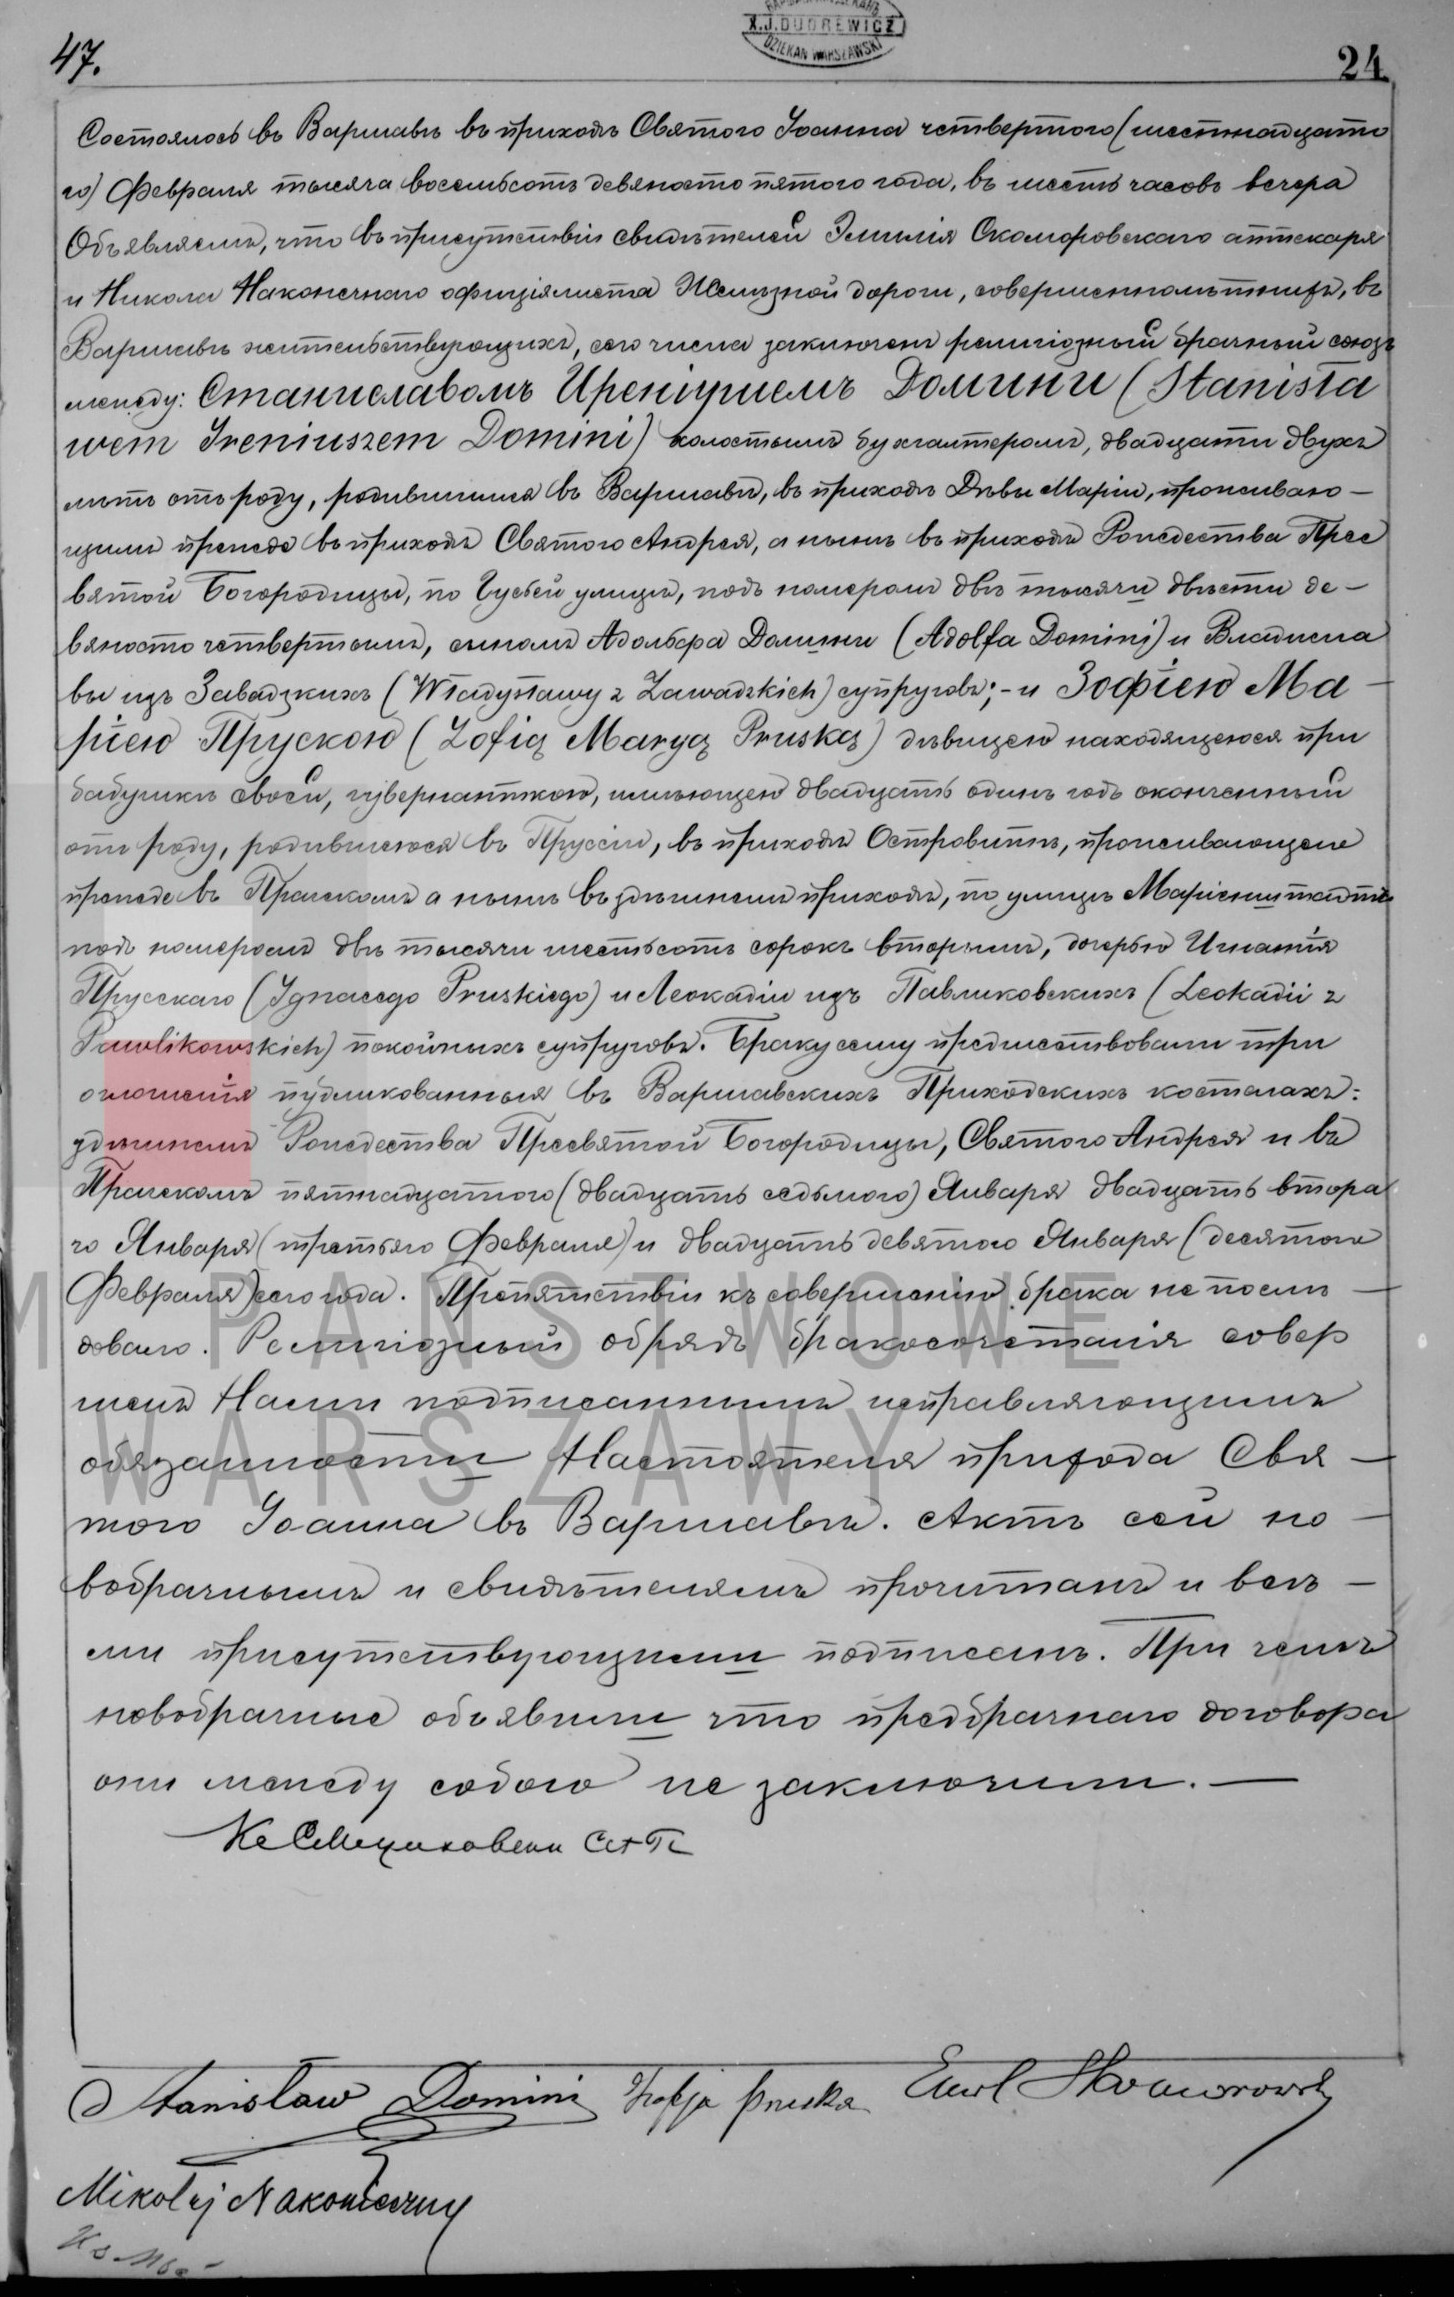 X.J.DUDREWICZ
DZIEKAN WARSZAWSKI
47.
24
Состоялось въ Варшавѣ въ приходѣ Святого Іоанна четвертого (шестнадцато
го) Февраля тысяча восемьсотъ девяносто пятого года, въ шесть часовъ вечера
Объявляемъ, что въ присутствіи свидѣтелей Эмилія Скоморовскаго аптекаря
и Никола Наконечнаго офиціялиста Желѣзной дороги, совершеннолѣтнихъ, въ
Варшавѣ жительствующихъ, сего числа заключенъ религіозный брачный союзъ
между: Станиславомъ Иреніушемъ Домини (Stanisła
wem Ireniuszem Domini) холостымъ бухгалтеромъ, двадцати двухъ
лѣтъ отъ роду, родившимся въ Варшавѣ, въ приходѣ Дѣвы Маріи, проживаю-
щимъ прежде въ приходѣ Святого Андрея, а нынѣ въ приходѣ Рождества Прес
вятой Богородицы, по Гусьей улицѣ, подъ номеромъ двѣ тысячи двѣсти де-
вяносто четвертымъ, сыномъ Адольфа Домини (Adolfa Domini) и Владисла
вы изъ Завадзкихъ (Władysławy z Zawadzkich) супруговъ;- и Зофіею Ма-
ріею Прускою (Zofią Maryą Pruską) дѣвицею находящеюся при
бабушкѣ своей, гувернанткою, имѣющею двадцать одинъ годъ оконченный
отъ роду, родившеюся въ Пруссіи, въ приходѣ Островитѣ, проживающею
прежде въ Пражскомъ а нынѣ въ здѣшнемъ приходѣ, по улицѣ Маріенштадтъ
подъ номеромъ двѣ тысячи шестьсотъ сорокъ вторымъ, дочерью Игнатія
Прусскаго (Ignacego Pruskiego) и Леокадіи изъ Павликовскихъ (Leokadii z
Pawlikowskich) покойныхъ супруговъ. Браку сему предшествовали три
оглашенія публикованныя въ Варшавскихъ Приходскихъ костелахъ:
здѣшнемъ Рождества Пресвятой Богородицы, Святого Андрея и въ
Пражскомъ пятнадцатого (двадцать седьмого) Января двадцать второ
го Января (третьяго Февраля) и двадцать девятого Января (десятого
Февраля) сего года. Препятствіи къ совершенію брака не послѣ-
довало. Религіозный обрядъ бракосочетанія совер
шенъ Нами подписаннымъ исправляющимъ
обязанности Настоятеля прихода Свя-
того Іоанна въ Варшавѣ. Актъ сей но-
вобрачнымъ и свидѣтелямъ прочитанъ и всѣ-
ми присутствующими подписанъ. При чемъ
новобрачные объявили что предбрачнаго договора
они между собою не заключили.—
Stanisław Domini Zofja Pruska Emil Skomorowski
Mikołaj Nakonieczny
M PAŃSTWOWE
WARSZAWY